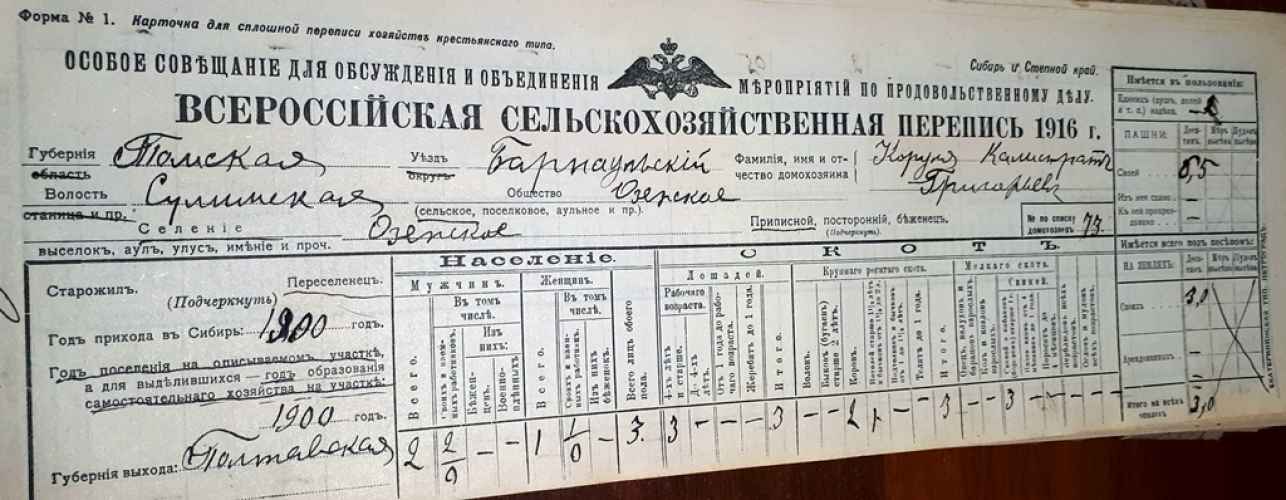 Форма № 1. Карточка для сплошной переписи хозяйствъ крестьянскаго типа.
Сибирь и Степной край.
ОСОБОЕ СОВѢЩАНІЕ ДЛЯ ОБСУЖДЕНІЯ И ОБЪЕДИНЕНІЯ МѢРОПРІЯТІЙ ПО ПРОДОВОЛЬСТВЕННОМУ ДѢЛУ.
ВСЕРОССІЙСКАЯ СЕЛЬСКОХОЗЯЙСТВЕННАЯ ПЕРЕПИСЬ 1916 г.
Губернія Томская Уѣздъ Барнаульскій Фамилія, имя и от- Коруня Калистратъ
область округъ чество домохозяина Григорьевъ
Волость Сулинская Общество Озенское
станица и пр. (сельское, поселковое, аульное и пр.)
Селеніе Озенское Приписной, посторонній, бѣженецъ. (Подчеркнуть) № по списку домохозяевъ 73
выселокъ, аулъ, улусъ, имѣніе и проч.
Старожилъ. Переселенецъ.
(Подчеркнуть)
Годъ прихода въ Сибирь: 1900 годъ.
Годъ поселенія на описываемомъ участкѣ,
а для выдѣлившихся — годъ образованія
самостоятельнаго хозяйства на участкѣ:
1900 годъ.
Губернія выхода: Полтавская
Населеніе.
Мужчинъ. Женщинъ.
Всего. Въ томъ числѣ. Всего. Въ томъ числѣ. Всего лицъ обоего пола.
Своихъ и наемныхъ работниковъ. Изъ нихъ: Бѣженцевъ. Военноплѣнныхъ
Изъ нихъ бѣженокъ.
2 2/0 – – 1 1/0 – 3
СКОТЪ.
Лошадей. Крупнаго рогатаго скота. Мелкаго скота.
Рабочаго возраста. Свиней.
4-хъ лѣтъ и старше. До 4-хъ лѣтъ. Отъ 1 года до рабочаго возраста. Жеребятъ до 1 года. Итого.
Воловъ. Быковъ (бугаевъ) старше 2 лѣтъ. Коровъ. Телятъ до 1 года. Итого.
3 – – – 3 – – 2 1 – – 3 – – 3 – – – –
Имѣется въ пользованіи:
ПАШНИ: Десятинъ
Своей 6,5
Изъ нея сдано –
Имѣется всего подъ посѣвомъ:
НА ЗЕМЛЯХЪ: Десятинъ
Своихъ 3,0
Арендованныхъ –
Итого на всѣхъ земляхъ 3,0